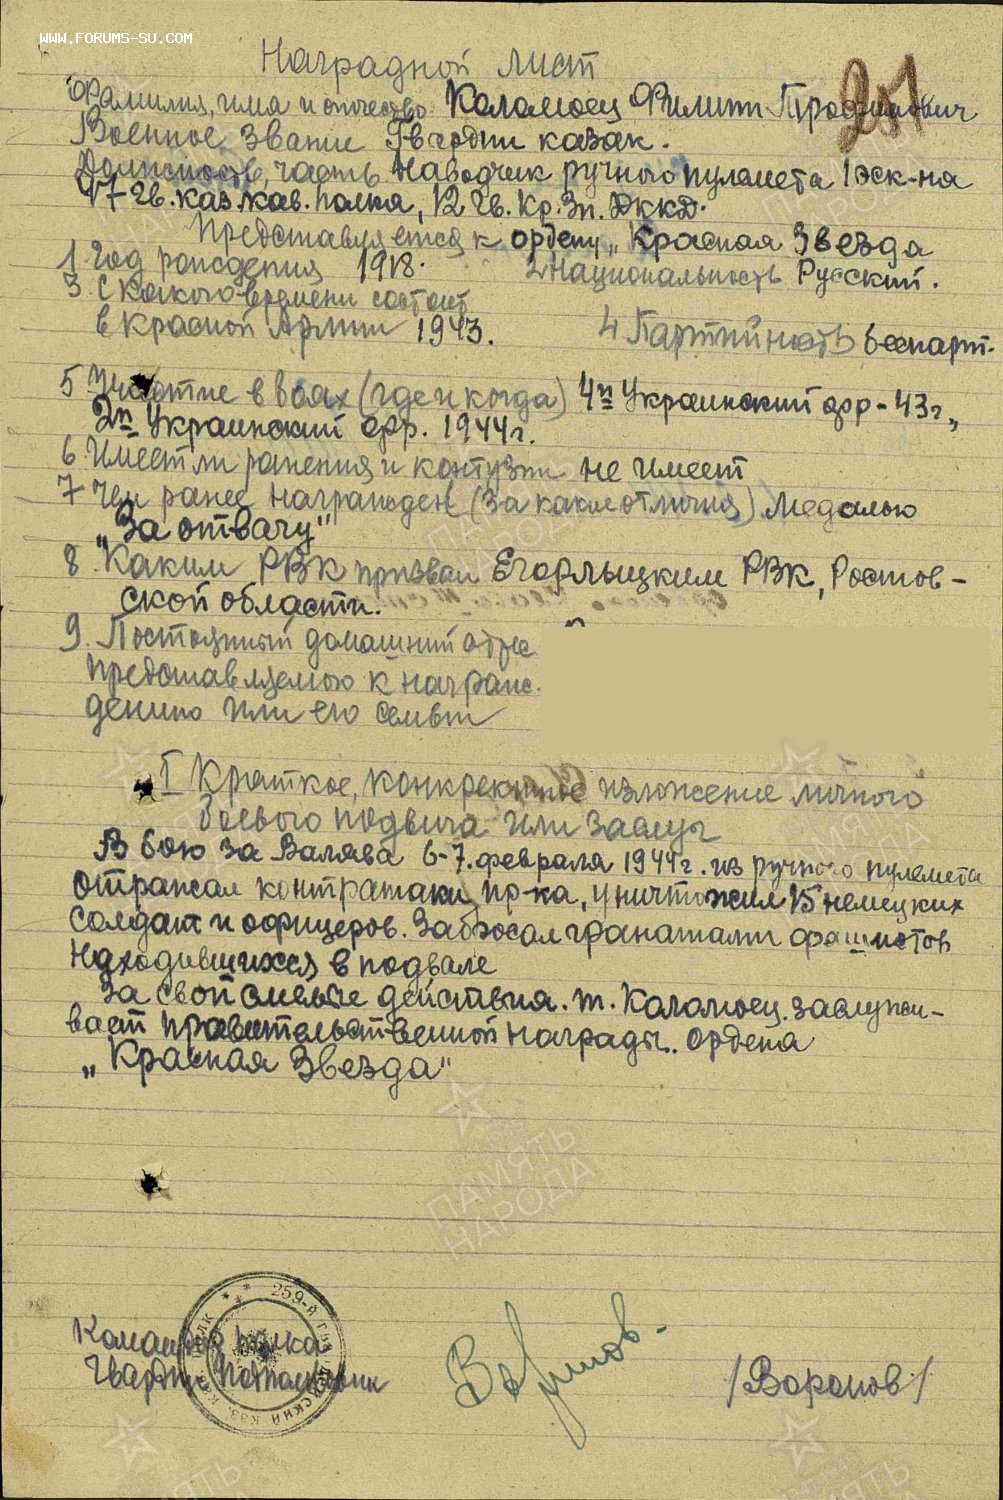 www.forums-su.com
Наградной лист
251
Фамилия, имя и отчество Коломоец Филипп Трофимович
Военное звание Гвардии казак.
Должность, часть Наводчик ручного пулемета 1 эск-на
47 гв. каз. кав. полка, 12 Гв. Кр. Зн. ДККД.
Представляется к ордену „Красная Звезда
1. Год рождения 1918. 2 Национальность Русский.
3. С какого времени состоит
в Красной Армии 1943. 4 Партийность беспарт.
5 Участие в боях (где и когда) 4й Украинский фр-43г.,
2й Украинский фр. 1944г.
6. Имеет ли ранения и контузии не имеет
7 Чем ранее награжден (за какие отличия) Медалью
„За отвагу"
8. Каким РВК призван Егорлыцким РВК, Ростов-
ской области.
9. Постоянный домашний адрес
представляемого к награж-
дению или его семьи
I Краткое, конкретное изложение личного
боевого подвига или заслуг
В бою за Валява 6-7. февраля 1944г. из ручного пулемета
отражал контратаки пр-ка, уничтожил 15 немецких
солдат и офицеров. Забросал гранатами фашистов
находившихся в подвале
За свои смелые действия. т. Коломоец. заслужи-
вает правительственной награды. ордена
„Красная Звезда"
Командир полка
Гвардии Подполковник
/Воронов/
259-й
ПАМЯТЬ
НАРОДА